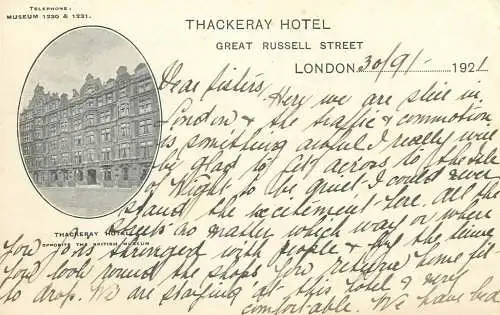 TELEPHONE:
MUSEUM 1230 & 1231.
THACKERAY HOTEL
GREAT RUSSELL STREET
LONDON, 30/9/- 1921
Dear Sisters,
Here we are still in
London & the traffic & commotion
is something awful I really
be glad to get across to the Isle
of Wight to be quiet I could never
stand the excitement here. All the
no matter which way or when
THACKERAY HOTEL
OPPOSITE THE BRITISH MUSEUM
you go is thronged with people & by the time
you look round the shops you return home fit
to drop. We are staying at this hotel & very
comfortable. We have bed